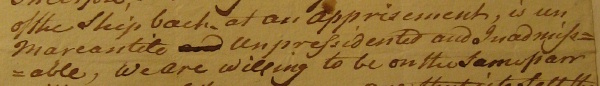 of the Ship back at an apprisement, is un
Marcantile and Unpressidented and Inadmiss=
=able, We are willing to be on the Same parr